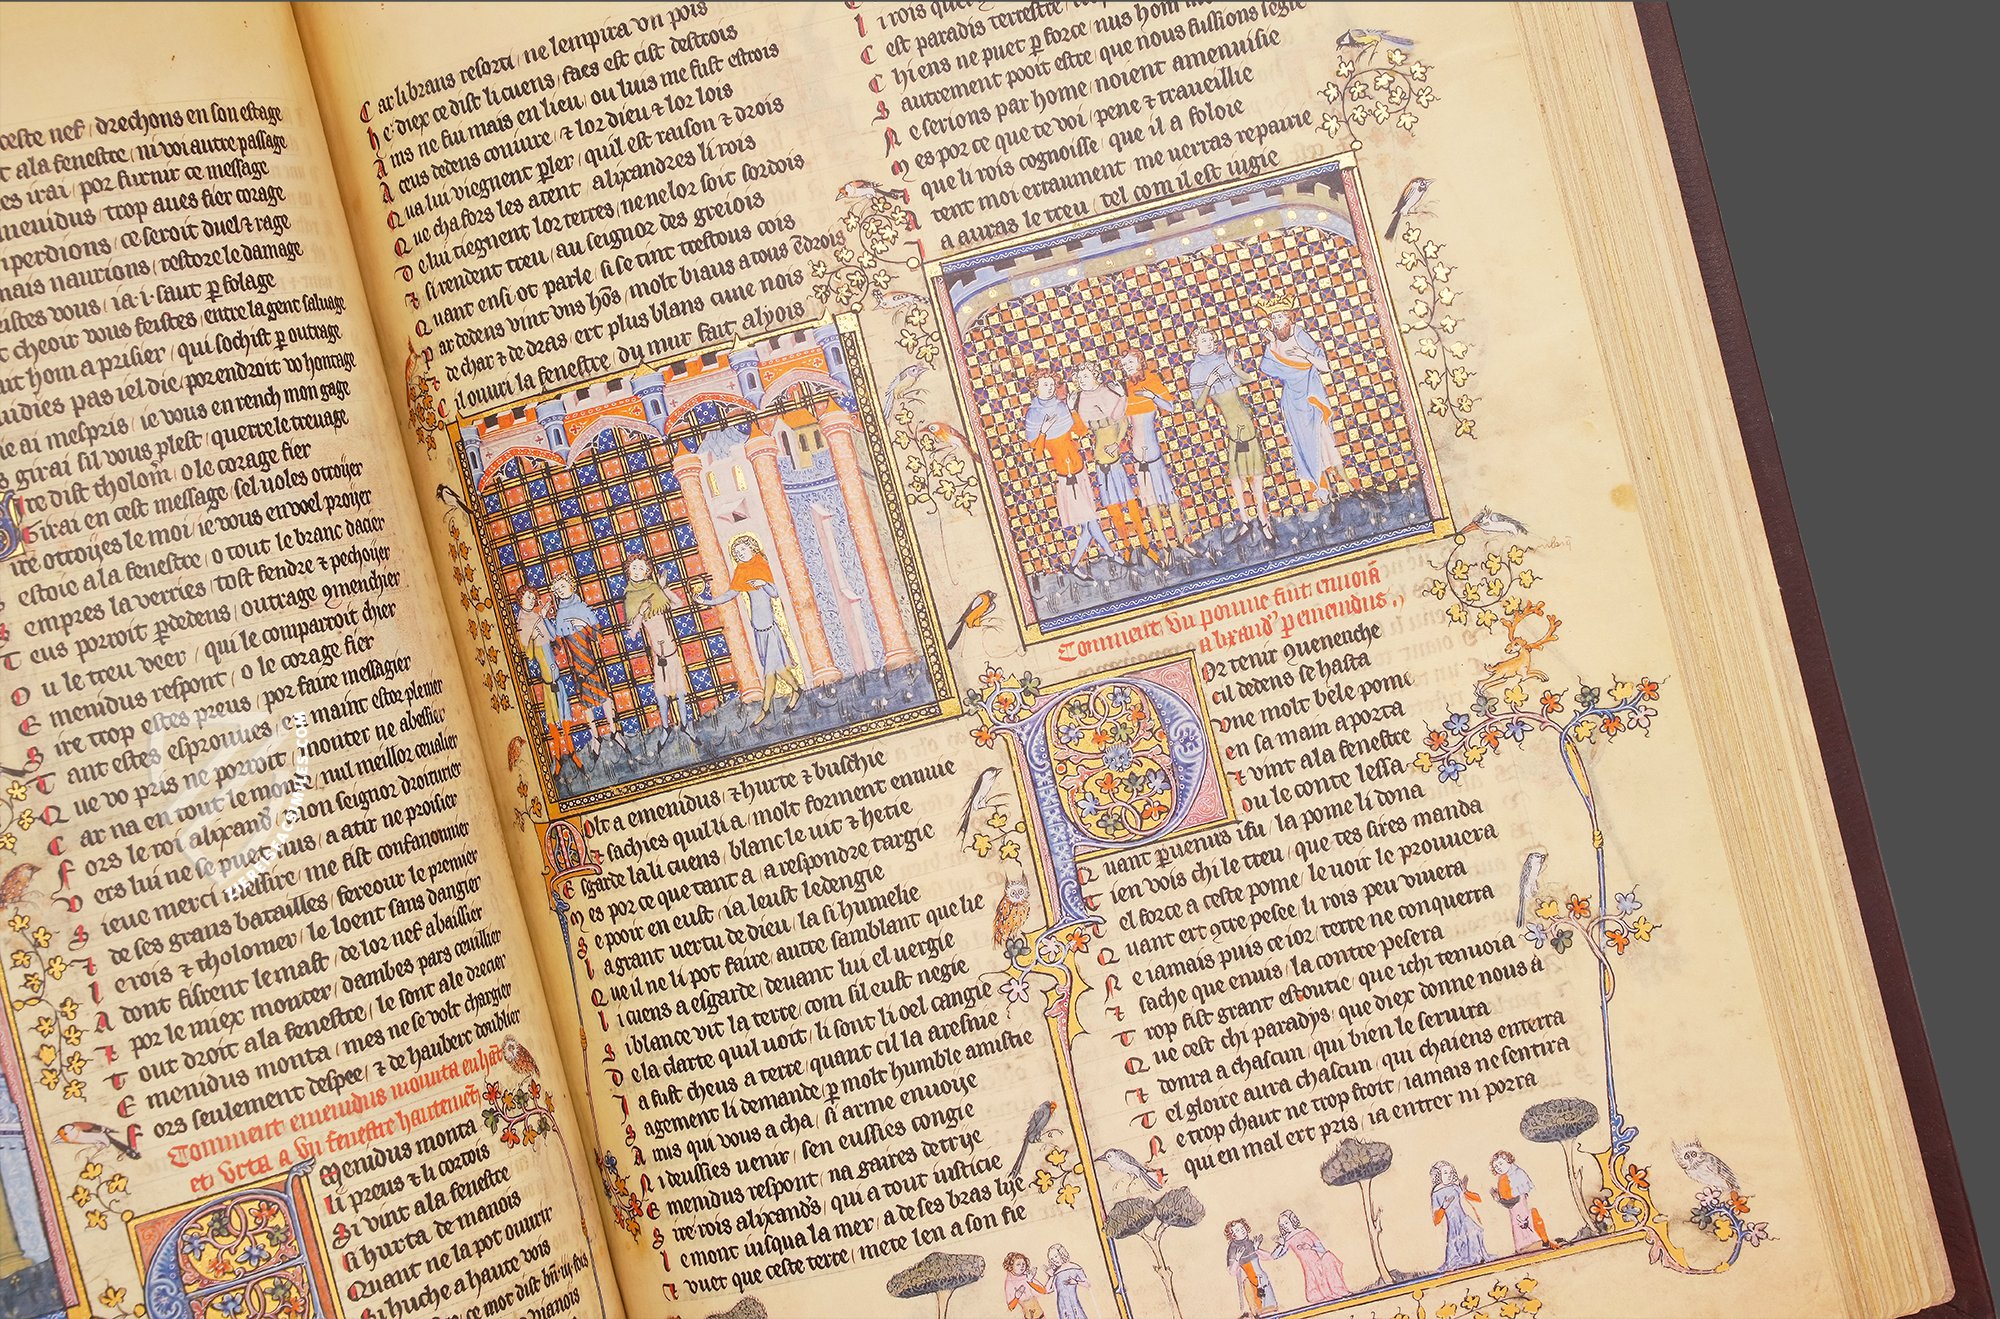 ceste nef / drechons en son estage
t ala fenestre / ni voi autre passage
es irai / por furnir ce message
menidus / trop aues fier corage
perdions / ce seroit duel & rage
mais naurions / restore le damage
vous / ia .i. saut p folage
t cheoir vous feistes / entre la gent saluage
hom a prisier / qui sochist p outrage
ludies pas iel die / por endroit vo hontage
ie ai mespris / ie vous en rench mon gage
girai sil vous plest / querre le treuage
ire dist tholom / o le corage fier
Girai en cest message / sel voles otroijer
ire ottroijes le moi / ie vous en voel proijer
estoie a la fenestre / o tout le branc dacier
empres la verries / tost fendre & pechoijer
T eus porroit pdedens / outrage 9mencher
O u le treu veer / qui le comparroit chier
E menidus respont / o le corage fier
S ire trop estes preus / por faire messagier
T ant estes esprouues / en maint estor plenier
Q ue vo pris ne porroit / monter ne abessier
C ar na en tout le monde / nul meillor cheualier
F ors le roi alixand / mon seignor droiturier
V ers lui ne se puet nus / a atir ne proisier
S ieue merci messire / me fist confanonnier
de ses grans batailles / fereour le premier
L i rois & tholomer / le loent sans dangier
A dont firent le mast / de lor nef abaissier
& por le miex monter / dambes pars cuillier
T out droit a la fenestre / le font ale drecier
E menidus monta / mes ne se volt chargier
F ors seulement despee / & de haubert doublier
Comment emenidus monta
et a vn fenestre
Emenidus monta
li preus & li cortois
Si vint ala fenestre
Si hurta de manois
Quant ne la pot ouurir
Si huche a haute vois
C ar li brans resorti / ne lempira vn pois
h e diex ce dist li cuens / faes est cist destrois
A ins ne fui mais en lieu / ou luis me fust estrois
A ceus dedens coniure / & lor dieu & lor lois
Q ua lui viegnent pler / quil est raison & drois
Q ue cha fors les atent alixandres li rois
D e lui tiegnent lor terres / ne ne lor soit sordois
& si rendent treu / au seignor des greiois
Q uant ensi ot parle / si se tint trestous cois
P ar dedens vint vns hos / molt biaus a tous endrois
& de char & de dras / ert plus blans cune nois
C il ouuri la fenestre / du mur fait a lijois
Molt a emenidus / & hurte & buschie
& sachies quil li a / molt forment ennuie
E sgarde la li cuens / blanc le vit & hetie
M es por ce que tant a / a respondre targie
S e pooir en eust / ia leust ledengie
L a grant vertu de dieu / la si humelie
Q ue il ne li pot faire / autre samblant que lie
L i cuens a esgarde / deuant lui el vergie
S i blance vit la terre / com sil eust negie
D e la clarte quil voit / li sont li oel cangie
I a fust cheus a terre / quant cil la aresnie
S agement li demande / p molt humble amistie
A mis qui vous a cha / si arme enuoije
N i deussies venir / sen eussies congie
E menidus respont / na gaires detrije
S ire rois alixands / qui a tout iusticie
L e mont iusqua la mer / a de ses bras lije
& vuet que ceste terre / mete len a son fie
C est paradis terrestre
C hiens ne puet p force / nus hom
S autrement pooit estre / que nous fussions legie
N e serions par home / noient amenuisie
M es por ce que te voi / pene & traueillie
& que li rois cognoisse / que il a foloie
A tent moi erraument me verras repairie
L a auras le treu / tel com il est iugie
Comment vn pomme fut enuoia
alixand p emenidus
Por tenir quenenche
cil dedens se hasta
Vne molt bele pome
en sa main aporta
& vint ala fenestre
Ou le conte lessa
Quant pvenus i fu / la pome li dona
Tien vois chi le treu / que tes sires manda
T el force a ceste pome / le voir le prouuera
Q uant ert 9tre pesee / li rois peu viuera
N e iamais puis ce ior / terre ne conquerra
& sache que enuis / la contre pesera
T rop fist grant estoutie / que ichi tenuoia
Q ue cest chi paradijs / que diex donne nous a
& donra a chascun / qui bien le seruira
T el gloire aura chascun / qui chaiens enterra
N e trop chaut ne trop froit / iamais ne sentira
& qui en mal ert pris / ia entrer ni porra